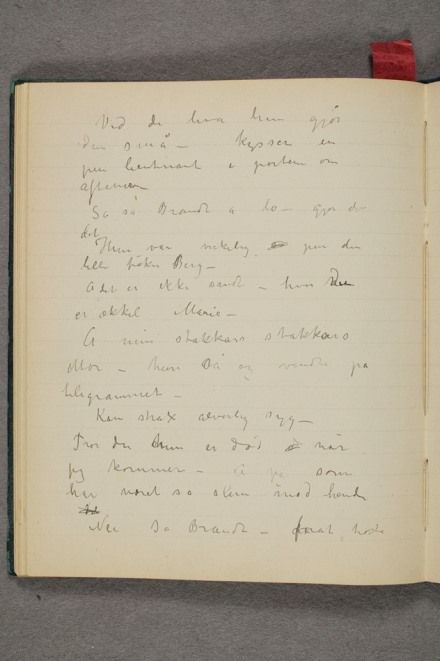 Ved du hva hun gjør
den små – kysser en
pen lieutnant i porten om
aftenen
Sa så Brandt a lo – gjør du
det
Hun var virkelig pen den
lille frøken Berg –
A det er ikke sandt – hun
er ækkel Marie –
A min stakkars stakkars
Mor – hun så og vendte på
telegrammet –
Kan strax alvorlig syg –
Tror du hun er død når
jeg kommer – A jeg som
har været så slem mod hende
Nei sa Brandt –